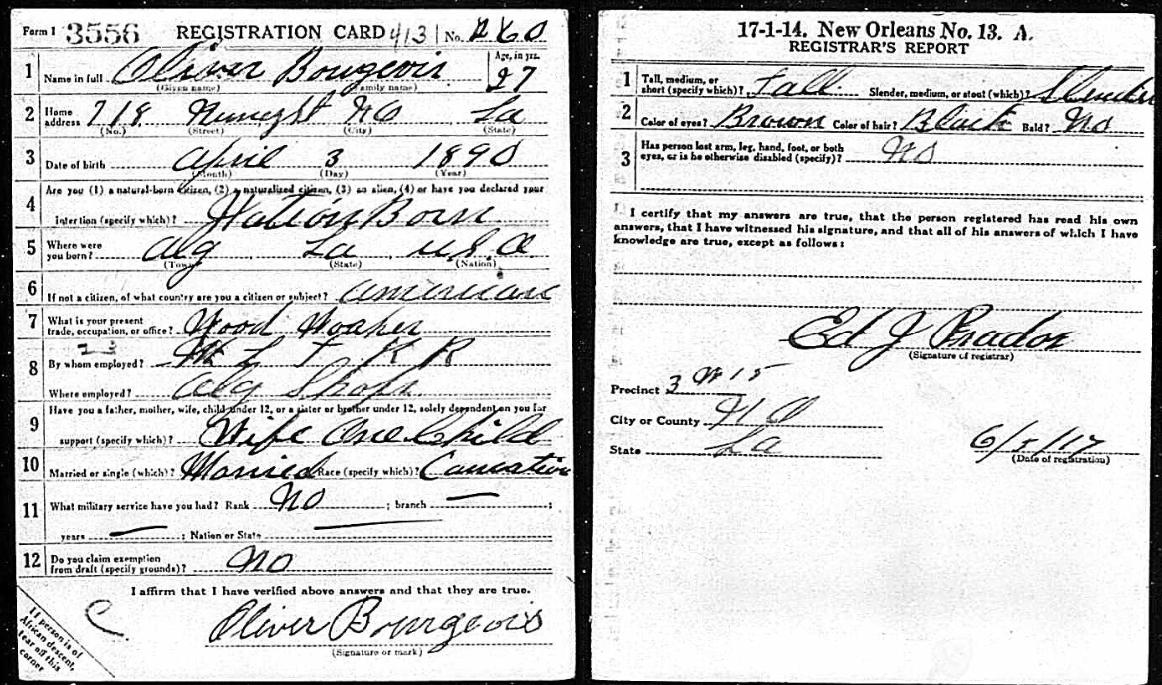 Form 1 3556 REGISTRATION CARD 413 No. 260
1 Name in full Oliver Bourgeois Age, in yrs. 27
(Given name) (Family name)
2 Home address 718 N O La
(No.) (Street) (City) (State)
3 Date of birth April 3 1890
(Month) (Day) (Year)
4 Are you (1) a natural-born citizen, (2) a naturalized citizen, (3) an alien, (4) or have you declared your
intention (specify which)? Nation Born
5 Where were you born? Alg La U S A
(Town) (State) (Nation)
6 If not a citizen, of what country are you a citizen or subject? American
7 What is your present trade, occupation, or office? Wood
8 By whom employed? R R
Where employed? Alg Shops
9 Have you a father, mother, wife, child under 12, or a sister or brother under 12, solely dependent on you for
support (specify which)? Wife One Child
10 Married or single (which)? Married Race (specify which)? Caucation
11 What military service have you had? Rank No ; branch — ;
years — ; Nation or State —
12 Do you claim exemption from draft (specify grounds)? No
I affirm that I have verified above answers and that they are true.
C
Oliver Bourgeois
(Signature or mark)
If person is of
African descent,
tear off this
corner
17-1-14. New Orleans No. 13. A.
REGISTRAR'S REPORT
1 Tall, medium, or short (specify which)? Tall Slender, medium, or stout (which)? Slender
2 Color of eyes? Brown Color of hair? Black Bald? No
3 Has person lost arm, leg, hand, foot, or both eyes, or is he otherwise disabled (specify)? No
I certify that my answers are true, that the person registered has read his own
answers, that I have witnessed his signature, and that all of his answers of which I have
knowledge are true, except as follows:
Ed J
(Signature of registrar)
Precinct 3 W 15
City or County N O
State La 6/5/17
(Date of registration)